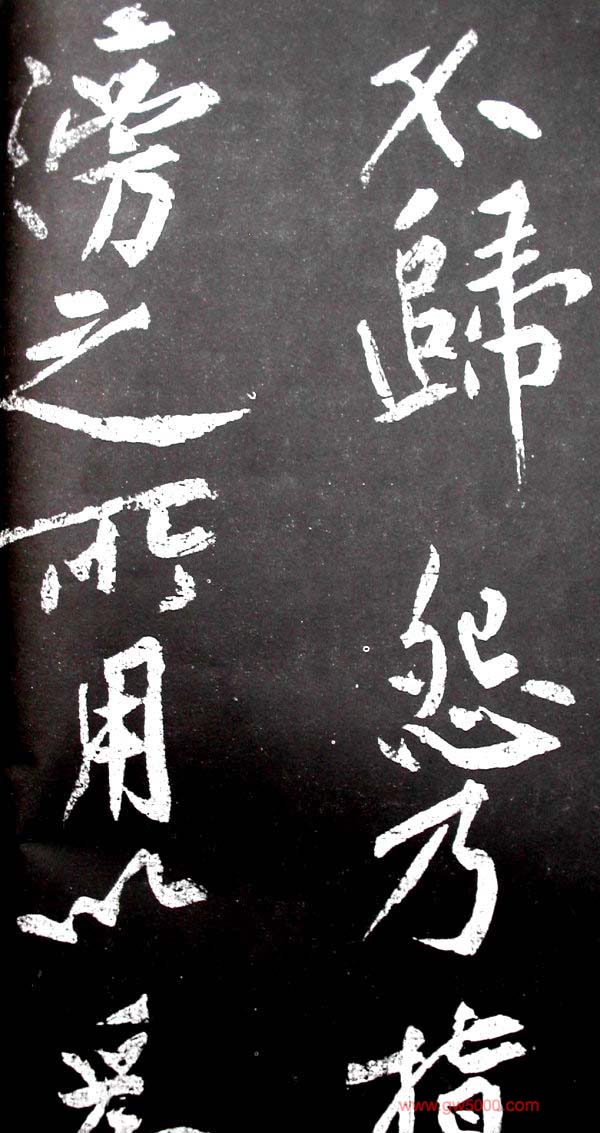 不歸怨乃指
滂之所用以為
www.gw5000.com